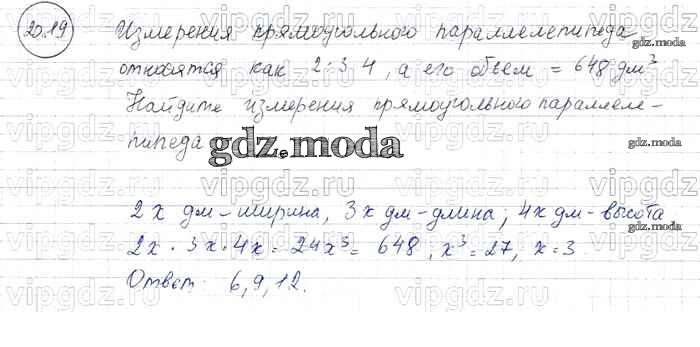 20.19 Измерения прямоугольного параллелепипеда
относятся как 2:3:4, а его объем = 648 дм³
Найдите измерения прямоугольного параллеле-
пипеда
gdz.moda
2x дм - ширина, 3x дм - длина, 4x дм - высота
2x · 3x · 4x = 24x³ = 648, x³ = 27, x = 3
Ответ: 6, 9, 12.